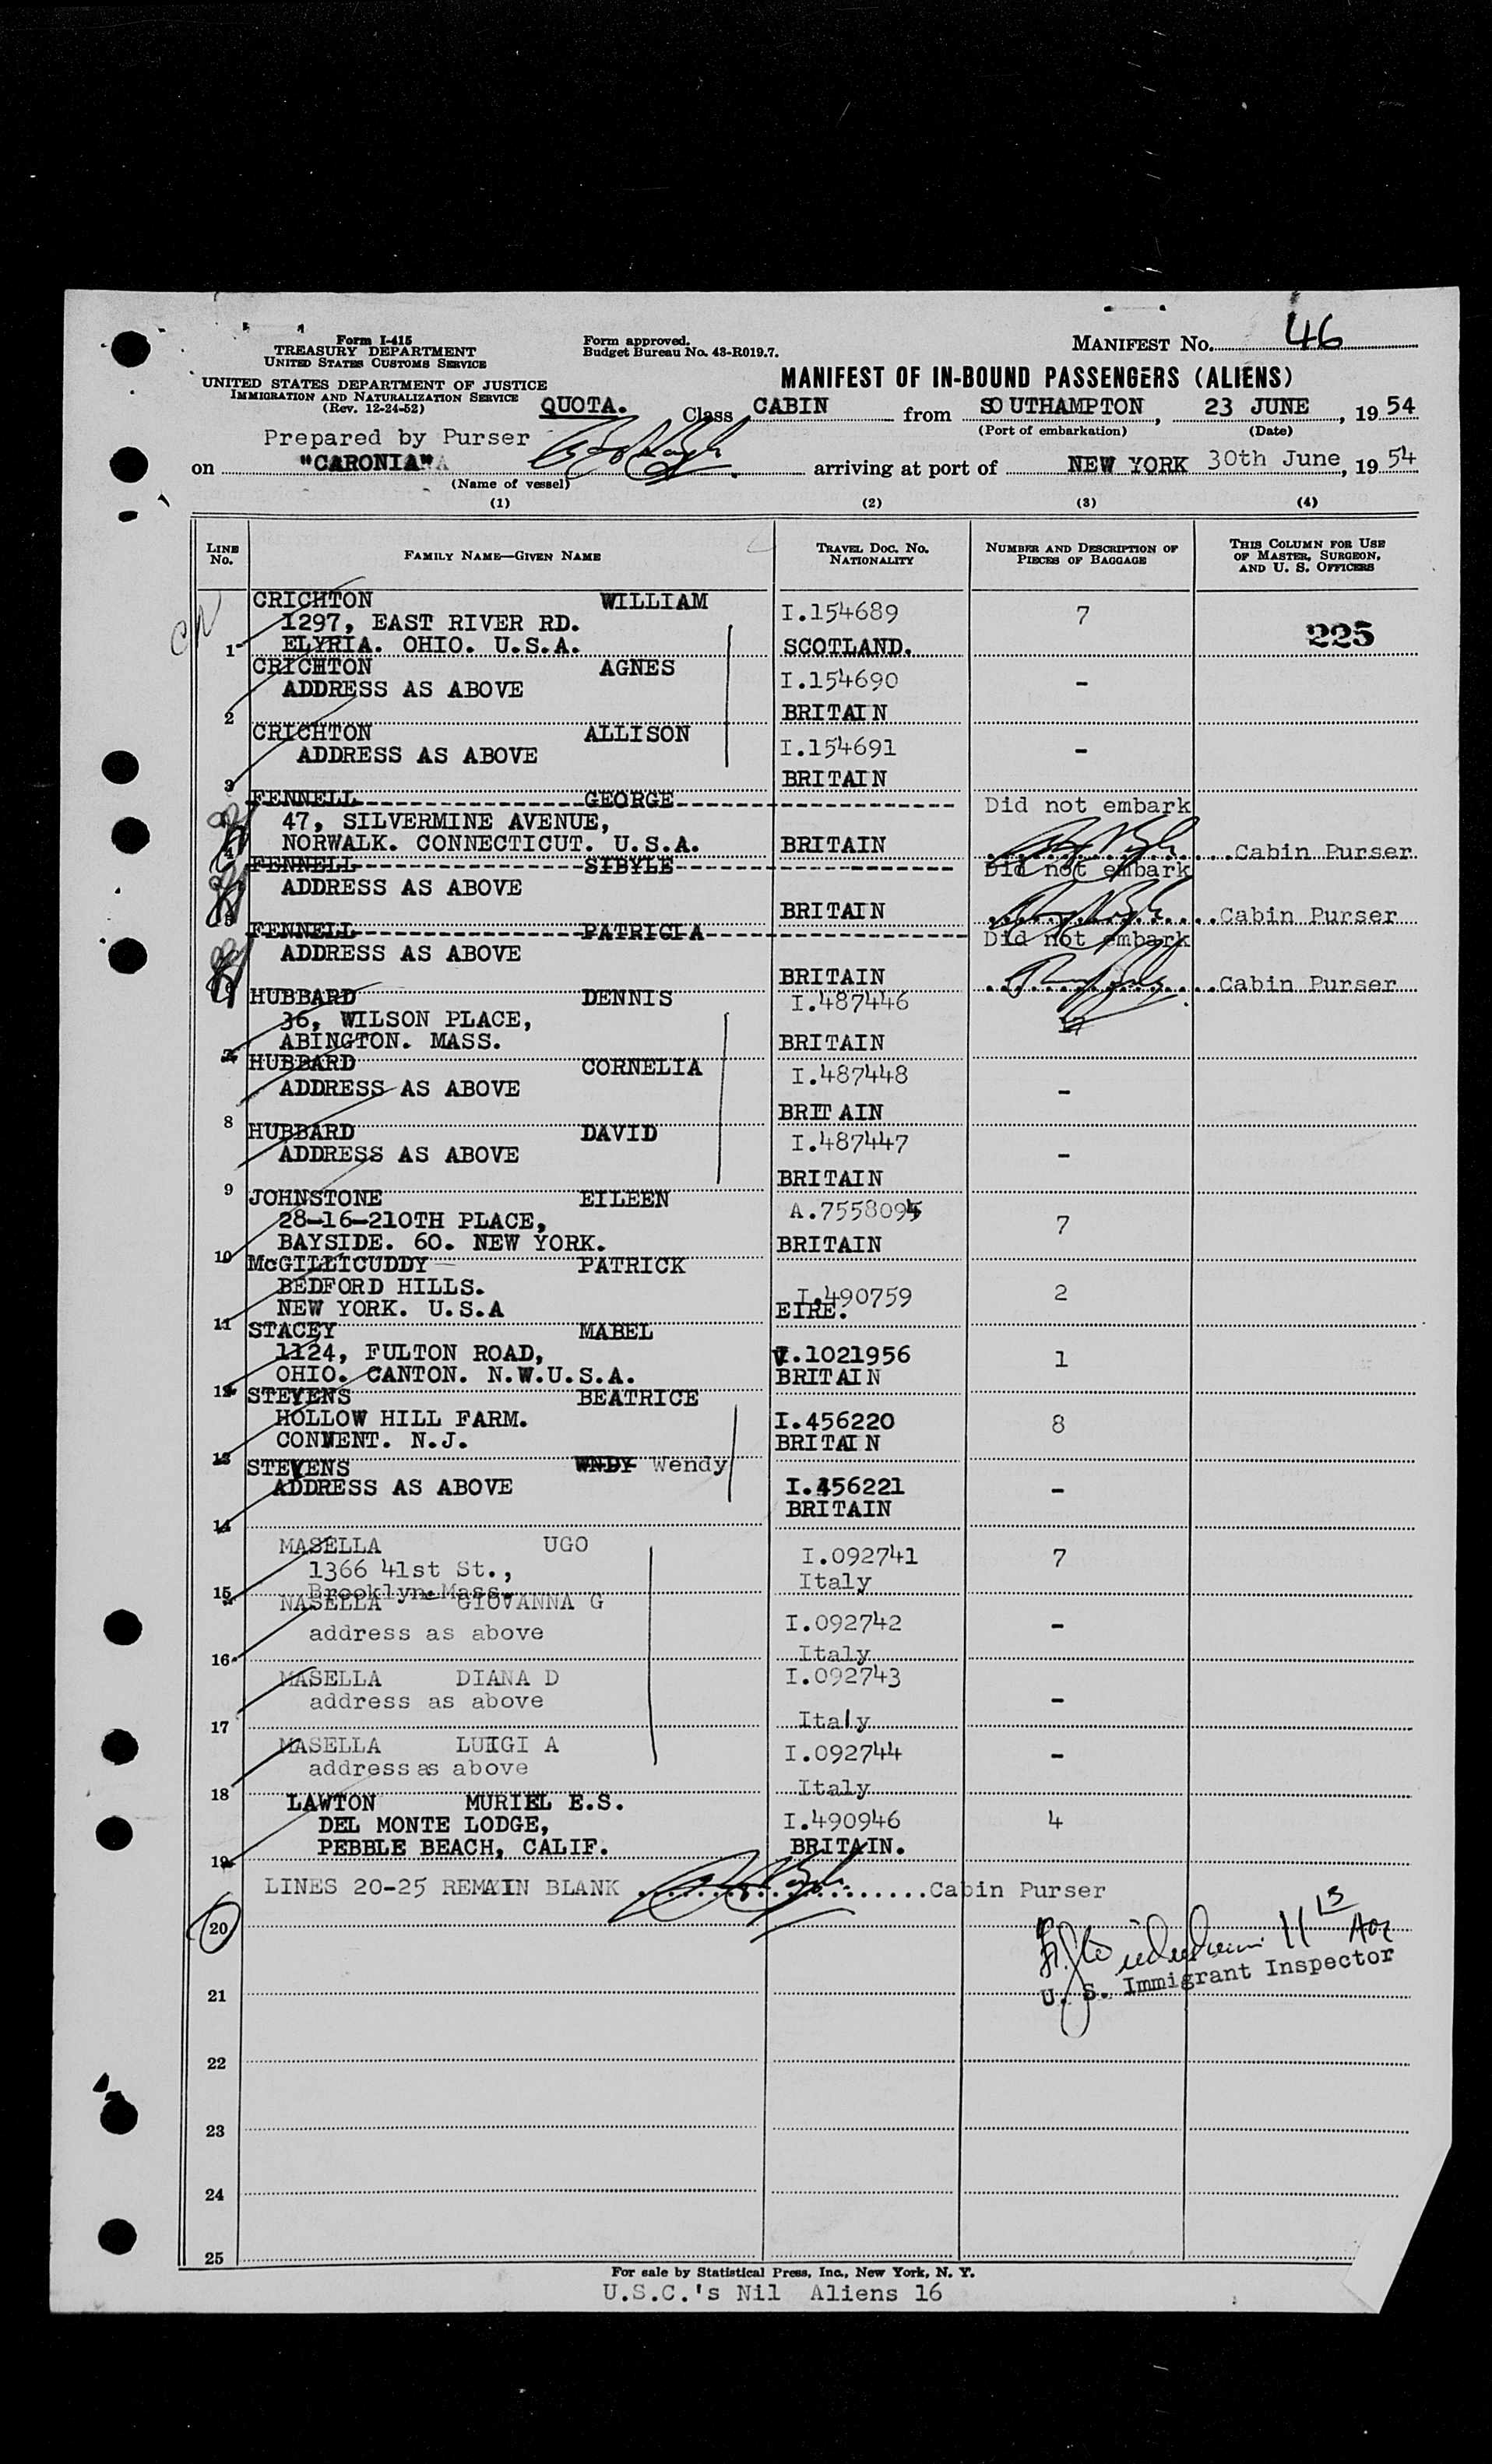 Form I-415
TREASURY DEPARTMENT
UNITED STATES CUSTOMS SERVICE
UNITED STATES DEPARTMENT OF JUSTICE
IMMIGRATION AND NATURALIZATION SERVICE
(Rev. 12-24-52)
Form approved.
Budget Bureau No. 43-R019.7.
MANIFEST No. 46
MANIFEST OF IN-BOUND PASSENGERS (ALIENS)
QUOTA. Class CABIN from SOUTHAMPTON, 23 JUNE, 1954
(Port of embarkation) (Date)
Prepared by Purser
on "CARONIA" arriving at port of NEW YORK 30th June, 1954
(Name of vessel)
(1) (2) (3) (4)
LINE No. FAMILY NAME—GIVEN NAME TRAVEL DOC. NO. NATIONALITY NUMBER AND DESCRIPTION OF PIECES OF BAGGAGE THIS COLUMN FOR USE OF MASTER, SURGEON, AND U. S. OFFICERS
CRICHTON WILLIAM I.154689 7
1297, EAST RIVER RD.
225
1 ELYRIA. OHIO. U.S.A. SCOTLAND.
CRICHTON AGNES I.154690 -
ADDRESS AS ABOVE
2 BRITAIN
CRICHTON ALLISON I.154691 -
ADDRESS AS ABOVE
3 BRITAIN
FENNELL GEORGE Did not embark
47, SILVERMINE AVENUE,
4 NORWALK. CONNECTICUT. U.S.A. BRITAIN Cabin Purser
FENNELL SIBYLE Did not embark
ADDRESS AS ABOVE
5 BRITAIN Cabin Purser
FENNELL PATRICIA Did not embark
ADDRESS AS ABOVE
6 BRITAIN Cabin Purser
HUBBARD DENNIS I.487446
36, WILSON PLACE, 17
7 ABINGTON. MASS. BRITAIN
HUBBARD CORNELIA I.487448 -
ADDRESS AS ABOVE
8 BRIT AIN
HUBBARD DAVID I.487447 -
ADDRESS AS ABOVE
9 BRITAIN
JOHNSTONE EILEEN A.7558095
28-16-210TH PLACE, 7
10 BAYSIDE. 60. NEW YORK. BRITAIN
McGILLICUDDY PATRICK
BEDFORD HILLS. I.490759 2
11 NEW YORK. U.S.A EIRE.
STACEY MABEL
1124, FULTON ROAD, V.1021956 1
12 OHIO. CANTON. N.W.U.S.A. BRITAIN
STEVENS BEATRICE
HOLLOW HILL FARM. I.456220 8
13 CONVENT. N.J. BRITAIN
STEVENS WNDY Wendy
ADDRESS AS ABOVE I.456221 -
14 BRITAIN
MASELLA UGO I.092741 7
1366 41st St.,
15 Brooklyn.Mass. Italy
NASELLA GIOVANNA G I.092742 -
address as above
16 Italy
MASELLA DIANA D I.092743
address as above -
17 Italy
MASELLA LUIGI A I.092744 -
address as above
18 Italy
LAWTON MURIEL E.S.
DEL MONTE LODGE, I.490946 4
19 PEBBLE BEACH, CALIF. BRITAIN.
LINES 20-25 REMAIN BLANK Cabin Purser
20
U. S. Immigrant Inspector
21
22
23
24
25
For sale by Statistical Press, Inc., New York, N. Y.
U.S.C.'s Nil Aliens 16